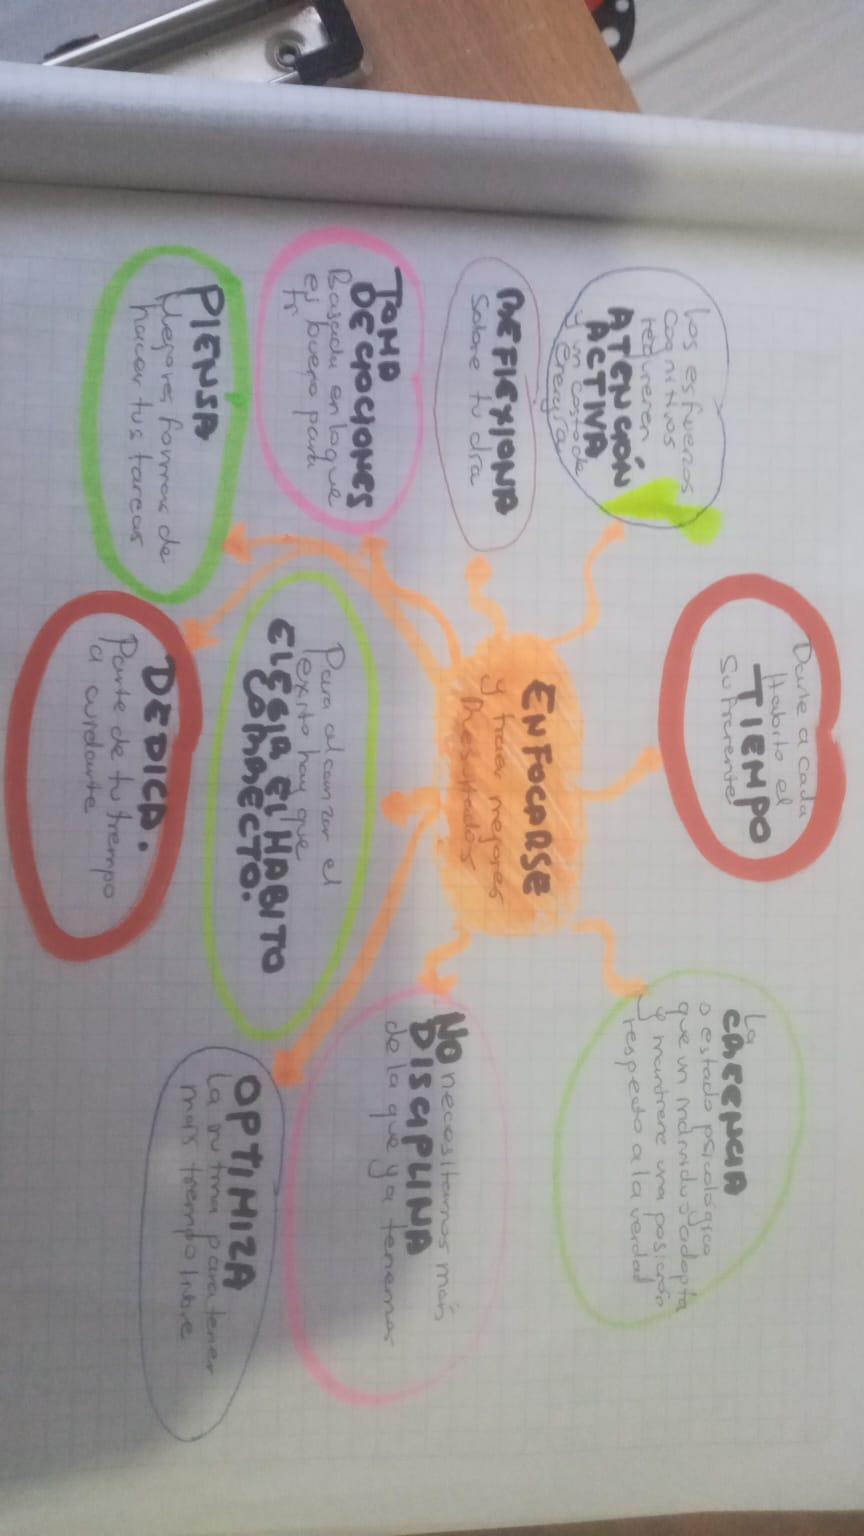 ENFOCARSE
y traer mejores
Resultados
Darle a cada
Habito el
TIEMPO
Suficiente
Los esfuerzos
cognitivos
requieren
ATENCIÓN
ACTIVA
y un costo de
energía
REFLEXIONA
Sobre tu día
TOMA
DECICIONES
Basada en lo que
es bueno para
ti
PIENSA
Mejores formas de
hacer tus tareas
DEDICA.
Parte de tu tiempo
a cuidarte
Para alcanzar el
éxito hay que
ELEGIR EL HABITO
CORRECTO.
OPTIMIZA
La rutina para tener
más tiempo libre
NO necesitamos más
DISCIPLINA
de la que ya tenemos
La
CREENCIA
o estado psicológico
que un individuo adopta
y mantiene una posición
respecto a la verdad